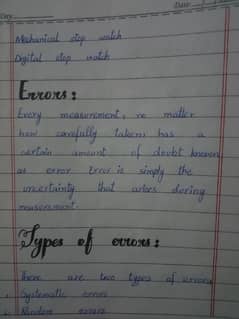 Date
Mechanical stop watch
Digital stop watch
Errors:
Every measurement, no matter
how carefully taken, has a
certain amount of doubt known
as error. Error is simply the
uncertainty that arises during
measurement.
Types of errors:
There are two types of errors
Systematic errors
Random errors